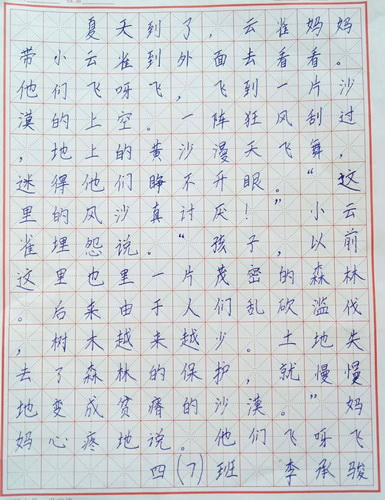 夏天到了，云雀妈妈
带小云雀到外面去看看。
他们飞呀飞，飞到一片沙
漠的上空。一阵狂风刮过
，地上的黄沙漫天飞舞，
迷得他们睁不开眼。“这
里的风沙真讨厌！”小云
雀埋怨说。“孩子，以前
这里也里一片茂密的森林
。后来由于人们乱砍滥伐
，树木越来越少。土地失
去了森林的保护，就慢慢
地变成贫瘠的沙漠。”妈
妈心疼地说。他们飞呀飞
四(7)班 李承骏